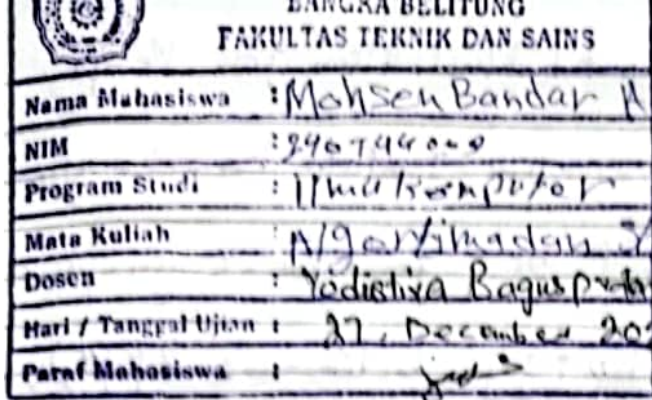 BANGKA BELITUNG
FAKULTAS TEKNIK DAN SAINS
Nama Mahasiswa : Mohsen Bandar A
NIM :
Program Studi : Ilmu Komputer
Mata Kuliah :
Dosen : Yodistira Bagus
Hari / Tanggal Ujian : 27, December 202
Paraf Mahasiswa :